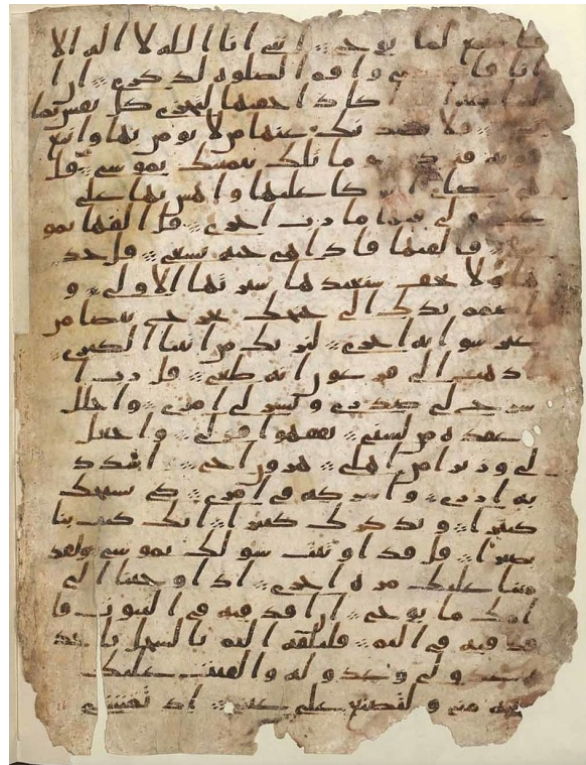 فاستمع لما يوحى انني انا الله لا اله الا
انا فاعبدني واقم الصلوه لذكري ان ا
اكاد اخفيها لتجزى كل نفس بما
فلا يصدنك عنها من لا يومن بها واتبع
هويه فتردى وما تلك بيمينك يموسى قل
هي عصاي اتوكا عليها واهش بها على
غنمي ولي فيها مارب اخرى قل القها يمو
سى فالقيها فاذا هي حيه تسعى قل خذ
ها ولا تخف سنعيدها سيرتها الاولى و
اضمم يدك الى جنحك تخرج بيضا من
غير سو ايه اخرى لنريك من ايتنا الكبرى
اذهب الى فرعون انه طغى قل رب ا
شرح لي صدري ويسر لي امري واحلل
عقده من لسني يفقهوا قولي واجعل
لي وزيرا من اهلي هرون اخي اشدد
به ازري واشركه في امري كي نسبحك
كثيرا ونذكرك كثيرا انك كنت بنا
بصيرا قل قد اوتيت سولك يموسى ولقد
مننا عليك مره اخرى اذ اوحينا الى
امك ما يوحى ان اقذفيه في التبوت فا
قذفيه في اليم فليلقه اليم بالسحل ياخذ
ه عدو لي وعدو له والقيت عليك
محبه مني ولتصنع على عيني اذ تمشي